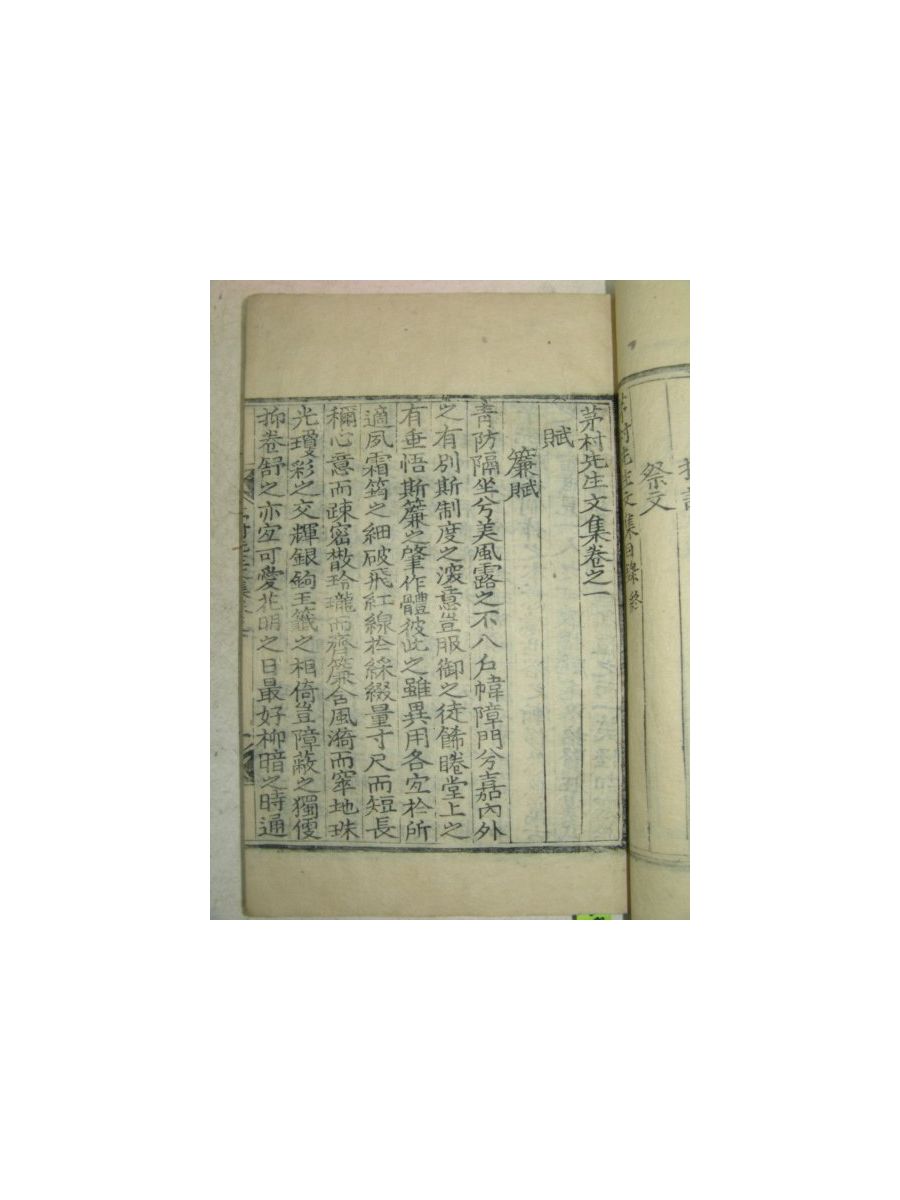 祭文
村先生文集目錄終
茅村先生文集卷之一
賦
簾賦
青防隔坐兮美風露之不入戶幃障門兮嘉內外
之有別斯制度之深意豈服御之徒餙睠堂上之
有垂悟斯簾之肇作體彼此之雖異用各宜於所
適夙霜筠之細破飛紅線於綵綴量寸尺而短長
稱心意而疎密散玲瓏而齊簇含風漪而窣地珠
光瓊彩之交輝銀鉤玉籤之相倚豈障蔽之獨優
抑卷舒之亦宜可愛花明之日最好柳暗之時通